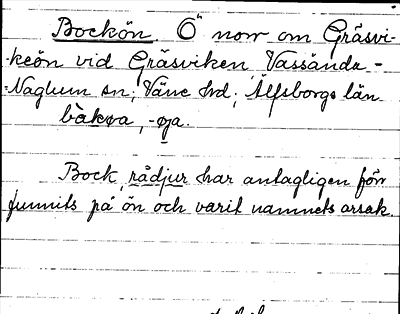 Bockön. Ö norr om Gräsvi-
-keön vid Gräsviken, Vassända-
-Naglum sn; Väne hd; Älfsborgs län.
bàkơa, -øja.
Bock, rådjur har antagligen förr
funnits på ön och varit namnets orsak.